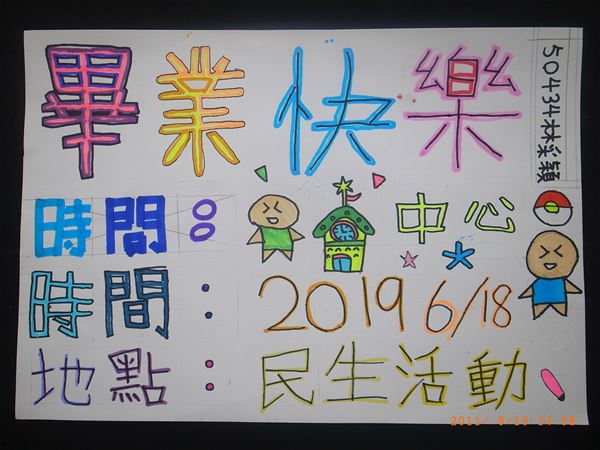 畢業快樂
50434林采穎
時間：
中心
時間：2019 6/18
地點：民生活動
2011/ 9/19 14:58